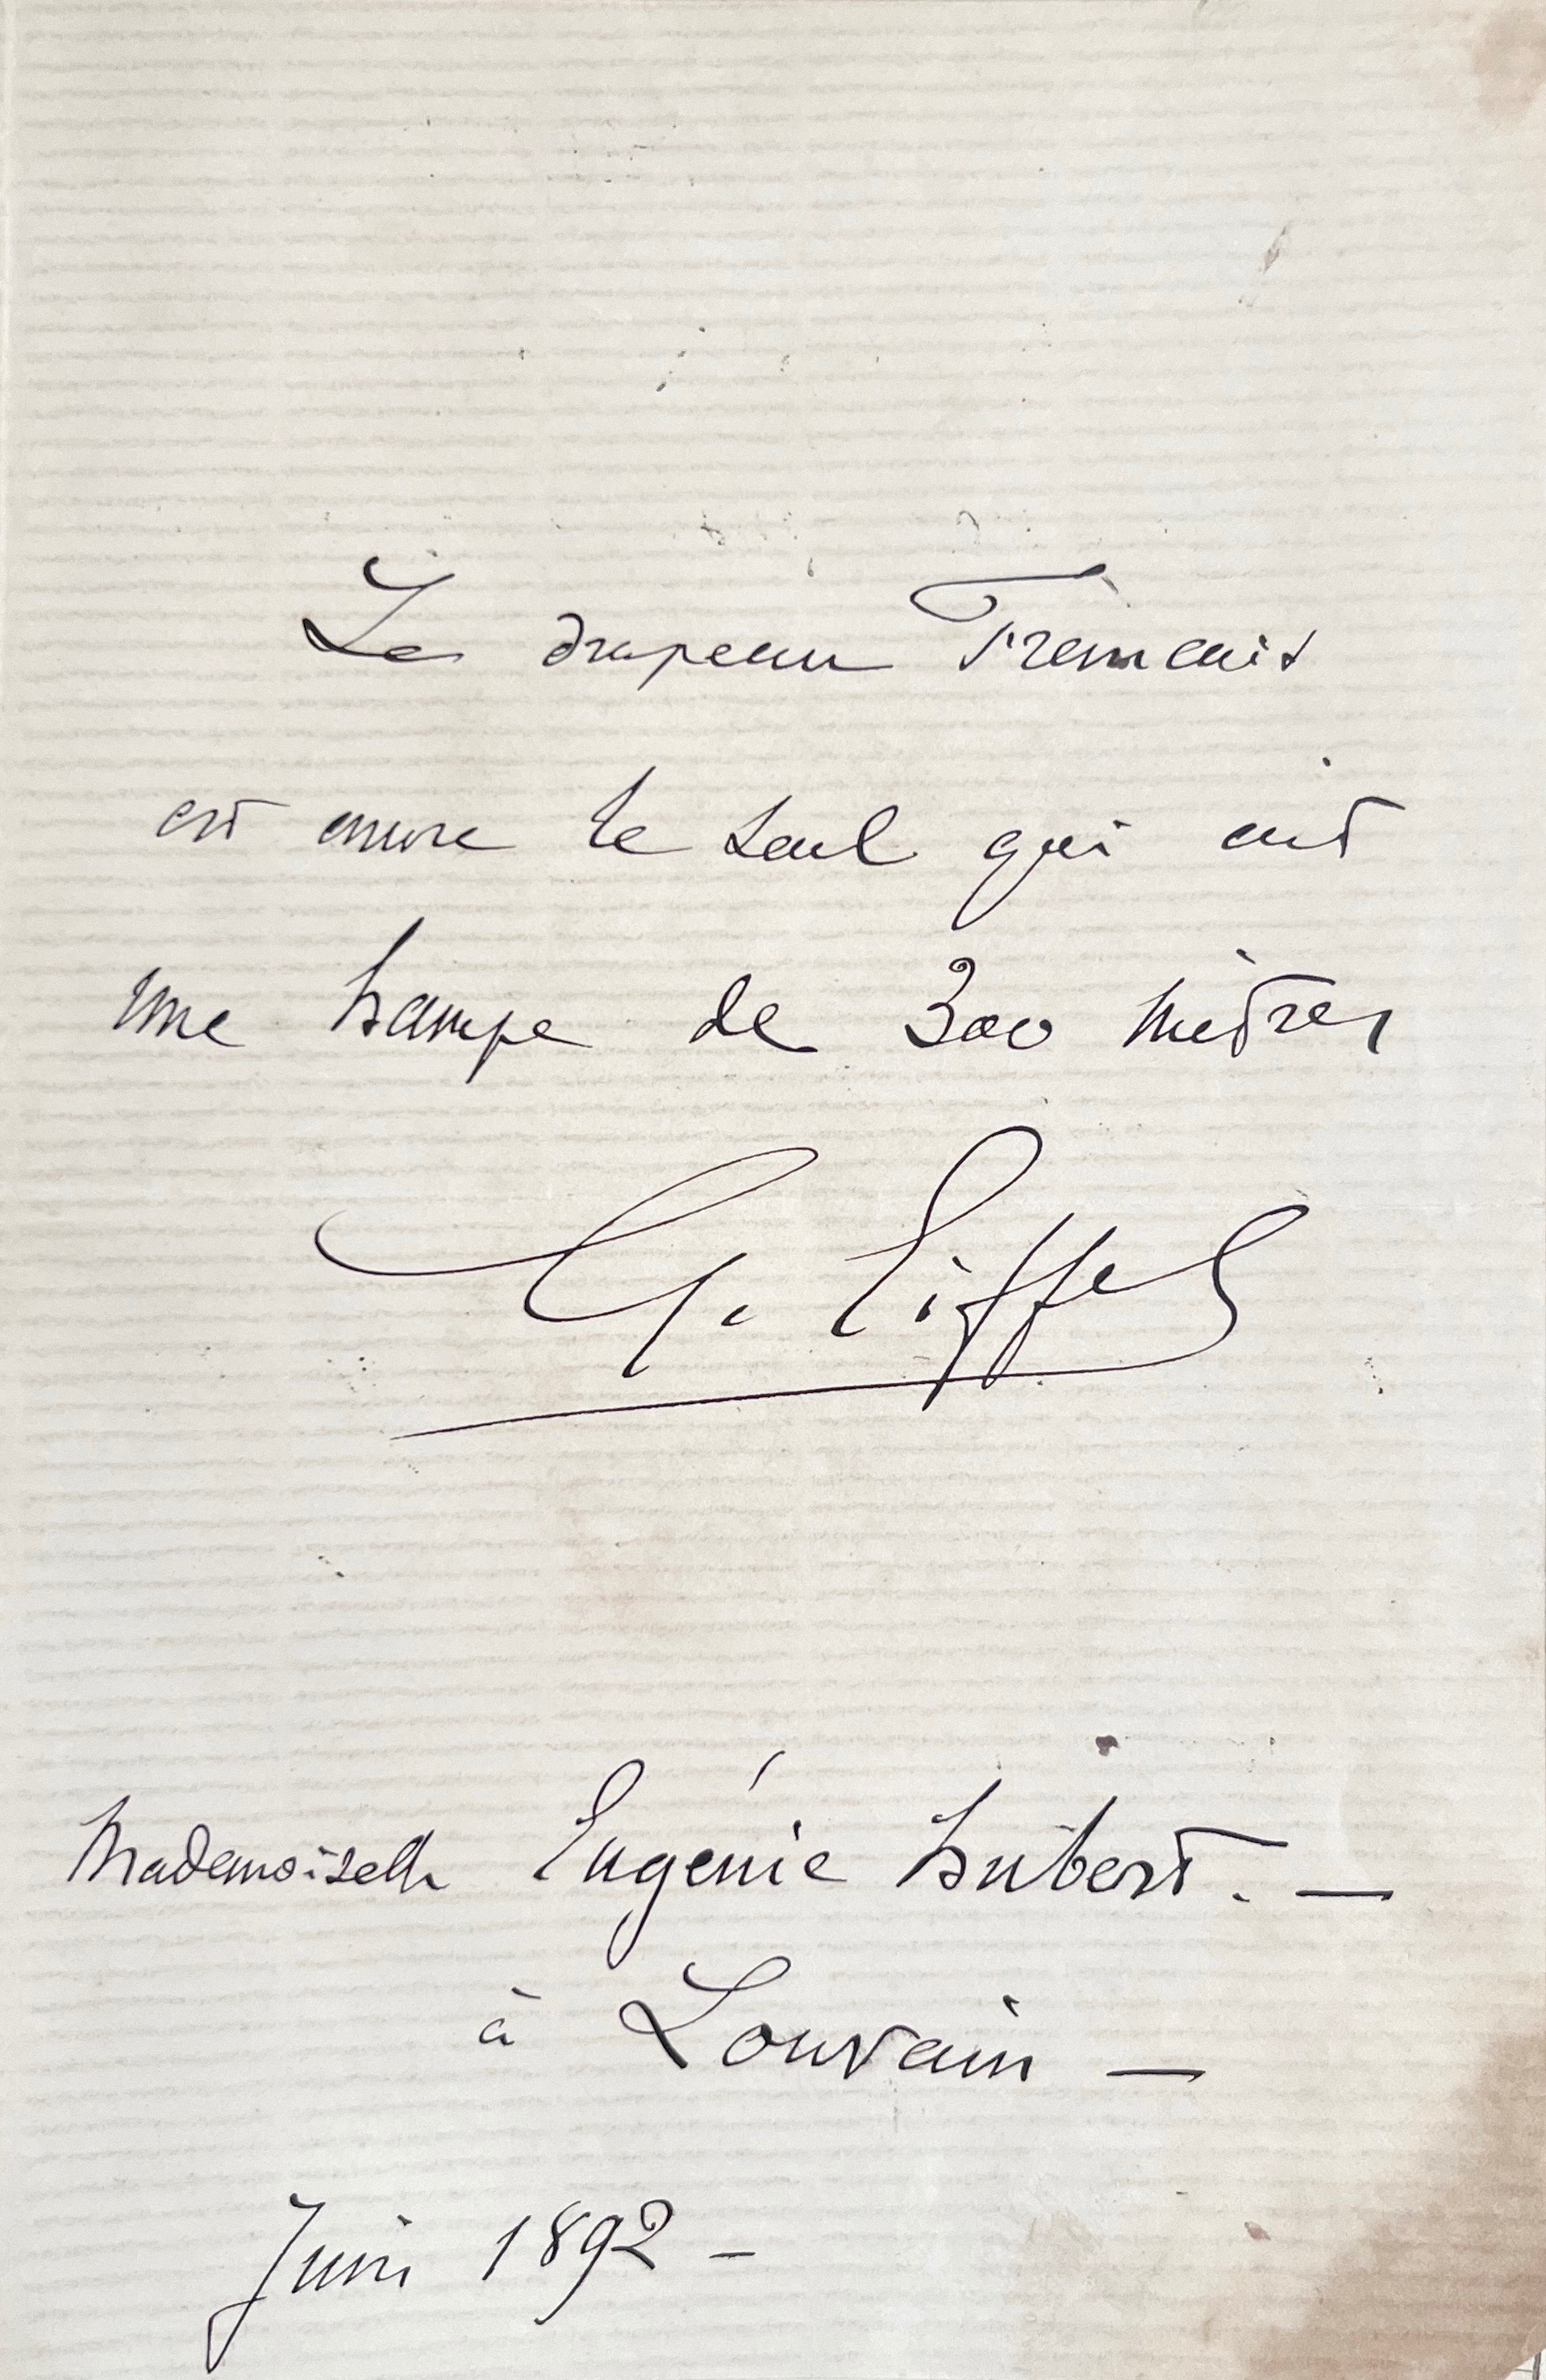 Le drapeau Francais
est encore le seul qui ait
une hampe de 300 mètres
G. Eiffel
Mademoiselle Eugénie Hubert. —
à Louvain —
Juin 1892 –